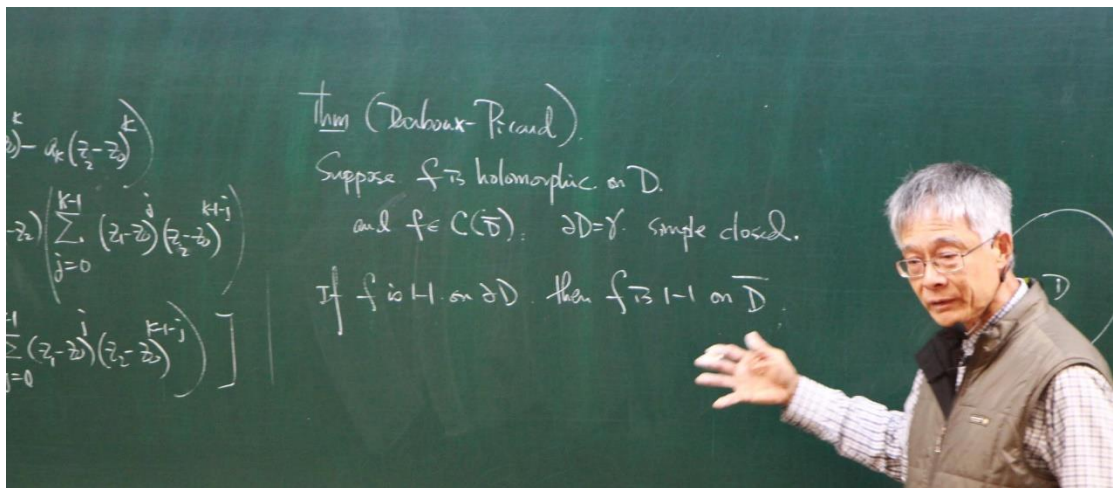 )^k - a_k(z_2-z_0)^k)
-z_2)(∑_{j=0}^{k-1} (z_1-z_0)^j (z_2-z_0)^{k-1-j})
∑_{j=0}^{k-1} (z_1-z_0)^j (z_2-z_0)^{k-1-j})]
Thm (Darboux-Picard).
Suppose f is holomorphic on D.
and f ∈ C(D̅). ∂D=γ. simple closed.
If f is 1-1 on ∂D. then f is 1-1 on D̅.
D